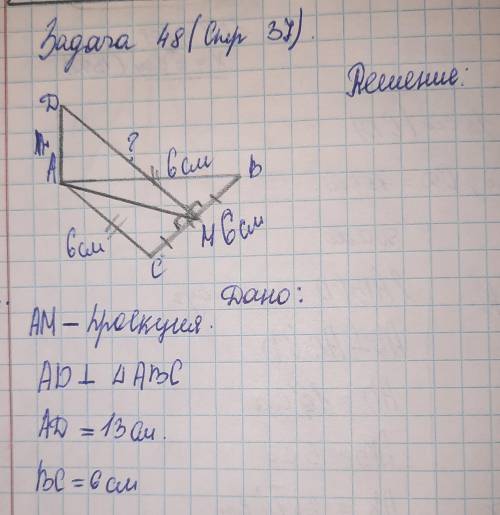 Задача 48 (Стр 37).
Решение:
D
?
A
6см
B
H 6см
6см
C
Дано:
AM – проекция.
AD ⊥ ΔABC
AD = 13 см.
BC = 6 см